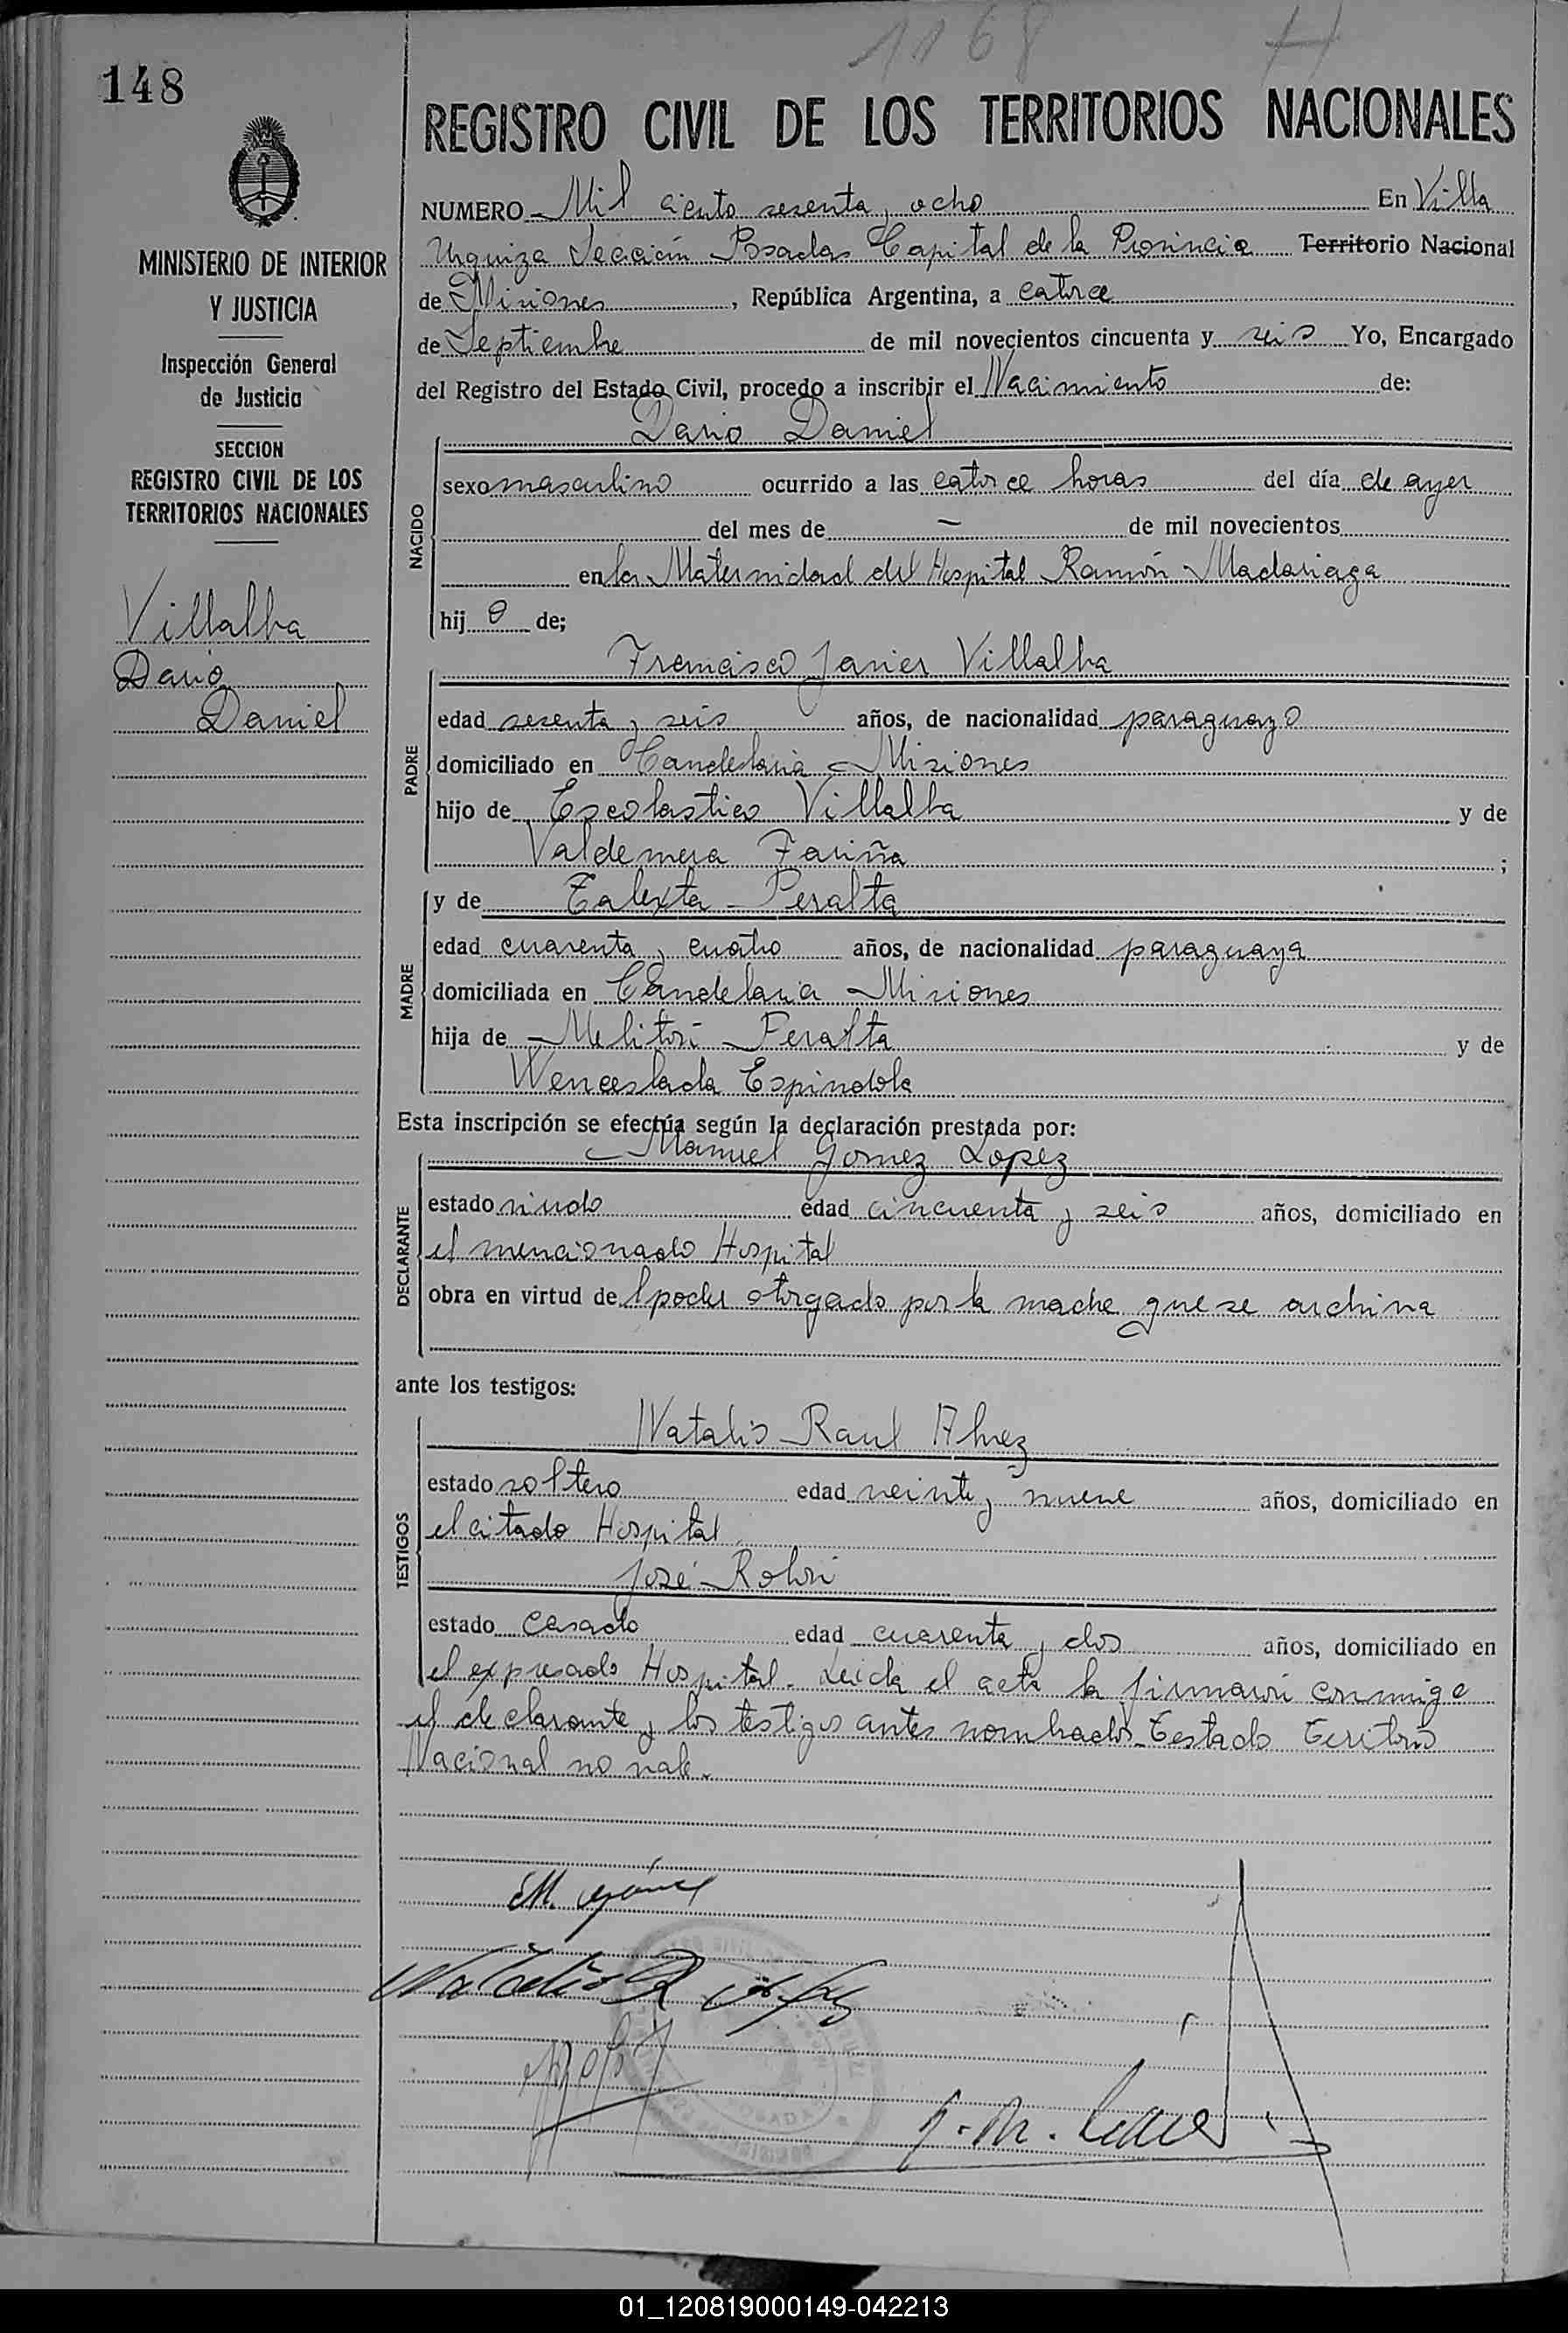 1168 H
148
REGISTRO CIVIL DE LOS TERRITORIOS NACIONALES
NUMERO Mil ciento sesenta y ocho En Villa
Urquiza Sección Posadas Capital de la Provincia Territorio Nacional
de Misiones, República Argentina, a catorce
de Septiembre de mil novecientos cincuenta y seis Yo, Encargado
del Registro del Estado Civil, procedo a inscribir el Nacimiento de:
MINISTERIO DE INTERIOR
Y JUSTICIA
Inspección General
de Justicia
SECCION
REGISTRO CIVIL DE LOS
TERRITORIOS NACIONALES
Villalba
Dario
Daniel
NACIDO
Dario Daniel
sexo masculino ocurrido a las catorce horas del día de ayer
del mes de — de mil novecientos
en la Maternidad del Hospital Ramón Madariaga
hij o de;
PADRE
Francisco Javier Villalba
edad sesenta y seis años, de nacionalidad paraguayo
domiciliado en Candelaria Misiones
hijo de Escolastico Villalba y de
Valdemera Fariña ;
MADRE
y de Calixta Peralta
edad cuarenta y cuatro años, de nacionalidad paraguaya
domiciliada en Candelaria Misiones
hija de Melitón Peralta y de
Wenceslada Espindola
Esta inscripción se efectúa según la declaración prestada por:
DECLARANTE
Manuel Gomez Lopez
estado viudo edad cincuenta y seis años, domiciliado en
el mencionado Hospital
obra en virtud de l poder otorgado por la madre que se archiva
ante los testigos:
TESTIGOS
Natalio Raul Alvez
estado soltero edad veinte y nueve años, domiciliado en
el citado Hospital
José
estado casado edad cuarenta y dos años, domiciliado en
el expresado Hospital. Leida el acta la firmaron conmigo
el declarante y los testigos antes nombrados. Testado Territorio
Nacional no vale.
M. Gómez
Natalio R
POSADAS
01_120819000149-042213